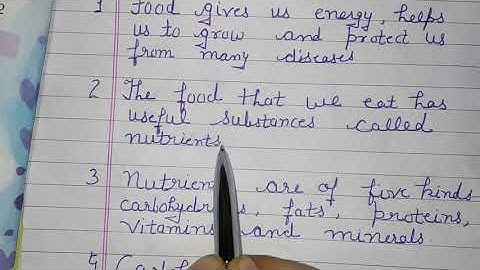 1 food gives us energy, helps
us to grow and protect us
from many diseases
2 The food that we eat has
useful substances called
nutrients
3 are of five kinds
fats, proteins,
Vitamins and minerals
4